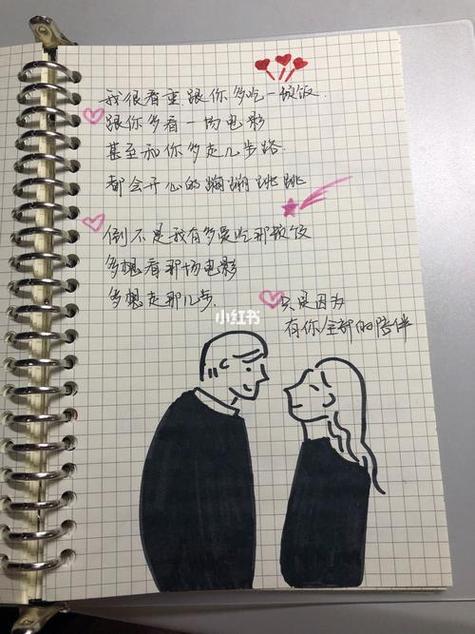 我很看重跟你多吃一顿饭.
跟你多看一场电影
甚至和你多走几步路.
都会开心的蹦蹦跳跳
倒不是我有多爱吃那顿饭
多想看那场电影
多想走那几步.
只是因为
有你全部的陪伴
小红书